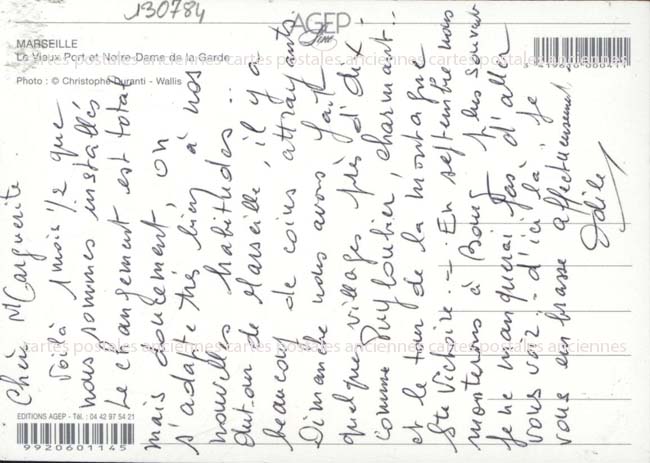 130784
AGEP
MARSEILLE
Le Vieux Port et Notre-Dame de la Garde
Photo : © Christophe Duranti - Wallis
Chère Marguerite
Voilà 1 mois 1/2 que
nous sommes installés
Le changement est total
mais doucement, on
s'adapte très bien à nos
nouvelles habitudes..
autour de Marseille, il y a
beaucoup de coins attrayants.
Dimanche nous avons fait
quelques villages près d'Aix :
comme Puyloubier, charmant..
et le tour de la montagne
Ste Victoire. - En septembre nous
montons à Bourg plus souvent
je ne manquerai pas d'aller
vous voir - d'ici là, je
vous embrasse affectueusement
Odile
cartes postales anciennes cartes postales anciennes cartes postales anciennes cartes postales anciennes
cartes postales anciennes cartes postales anciennes cartes postales anciennes cartes postales anciennes
EDITIONS AGEP - Tél. : 04 42 97 54 21
9920601145